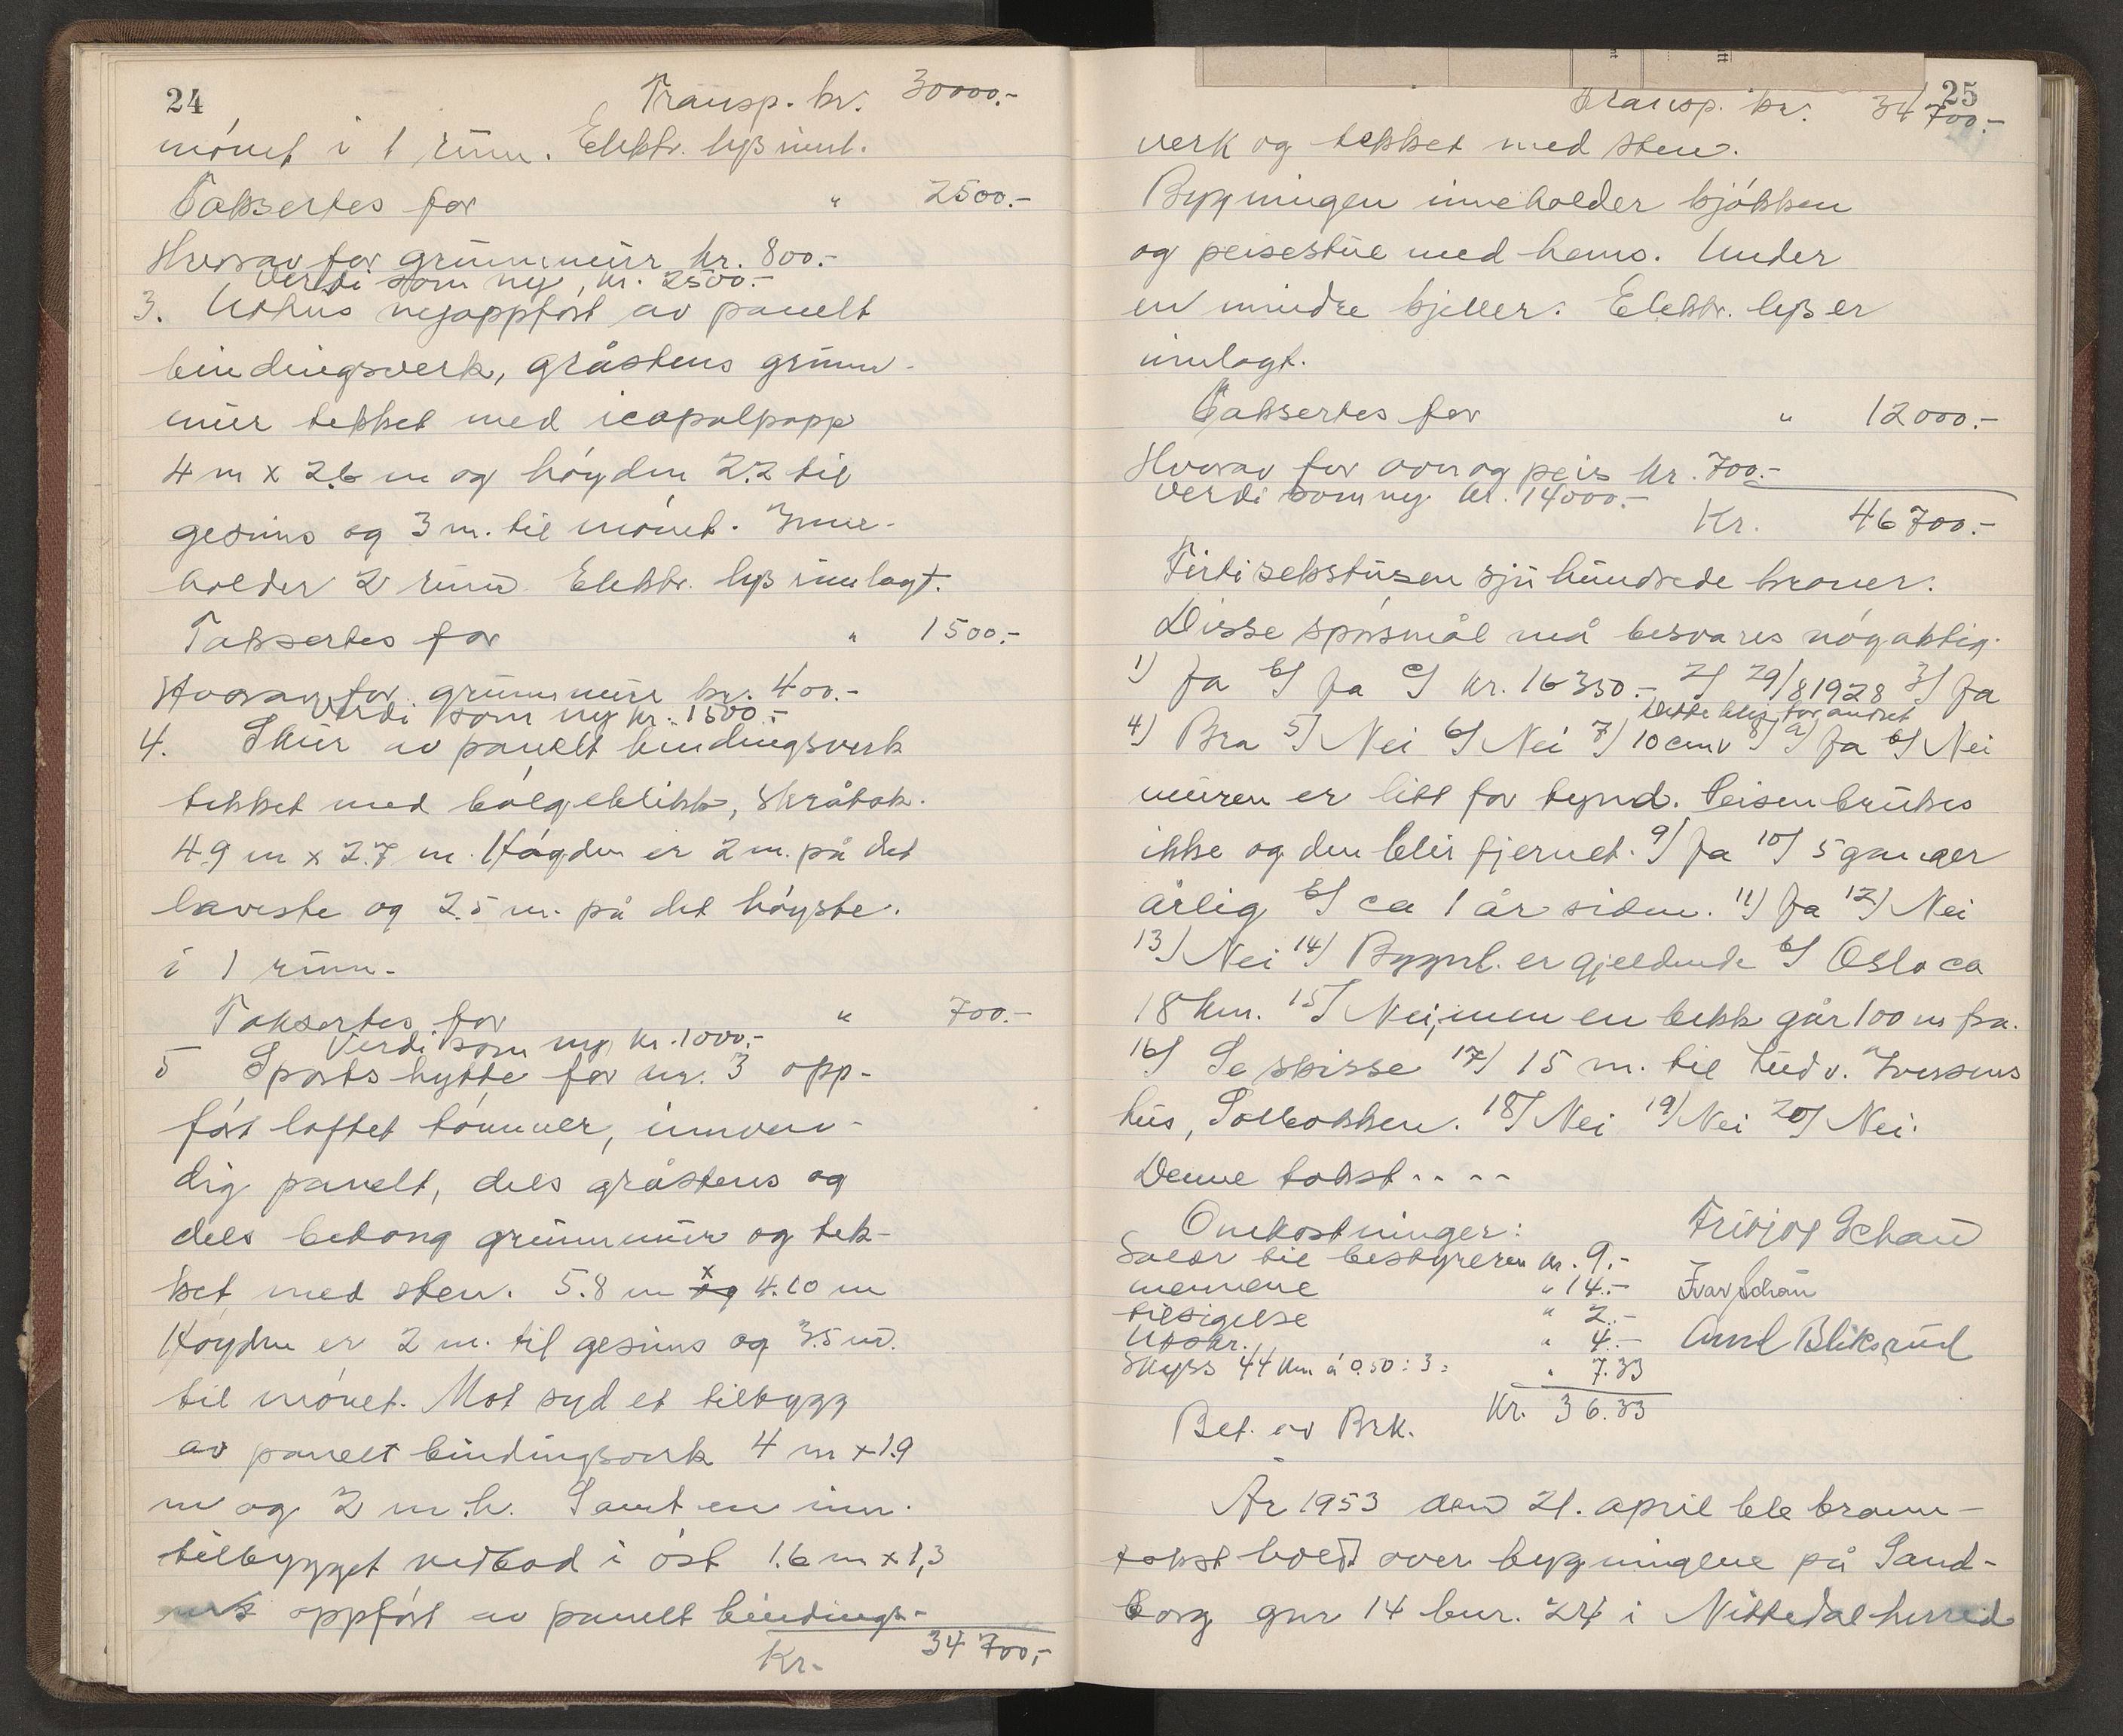 24
Transp. kr. 30000.-
mónet i 1 rum. Elektr. lys innl.
Taksertes for " 2500.-
Hvorav for grunnmur kr. 800.-
Verdi som ny, kr. 2500.-
3. Uthus nyoppfört av panelt
bindingsverk, gråstens grunn-
mur tekket med icopalpapp
4 m x 2.6 m og höyden 2.2 til
gesims og 3 m. til mönet. Inne-
holder 2 rum Elektr. lys innlagt.
Taksertes for " 1500.-
Hvorav for grunnmur kr. 400.-
Verdi som ny kr. 1500.-
4. Skur av panelt bindingsverk
tekket med bölgeblikk, skråtak.
4.9 m x 2.7 m. Höyden er 2 m. på det
laveste og 2.5 m. på det höyste.
i 1 rum.
Taksertes for " 700.-
Verdi som ny kr. 1000.-
5 Sportshytte for nr. 3 opp-
fört loftet tömmer, innven-
dig panelt, dels gråstens og
dels betong grunnmur og tek-
ket med sten. 5.8 m x 4.10 m
Höyden er 2 m. til gesims og 3.5 m.
til mönet. Mot syd et tilbygg
av panelt bindingsverk 4 m x 1.9
m og 2 m.h. Samt en inn-
tilbygget vedbod i öst 1.6 m x 1,3
oppfört av panelt bindings-
Kr. 34 700,-
25
Transp. kr. 34 700.-
verk og tekket med sten.
Bygningen inneholder kjökken
og peisestue med hems. Under
en mindre kjeller. Elektr. lys er
innlagt.
Taksertes for " 12000.-
Hvorav for ovn og peis kr. 700.-
Verdi som ny kr. 14000.-
Kr. 46700.-
Førti sekstusen sju hundrede kroner.
Disse spörsmål må besvares nögaktig.
1) Ja b) Ja c) kr. 16350.- 2) 29/8 1928 3) Ja
Dette blir forandret
4) Bra 5) Nei 6) Nei 7) 10 cm 8) a) Ja b) Nei
muren er litt for tynd. Peisen brukes
ikke og den blir fjernet. 9) Ja 10) 5 ganger
årlig b) ca 1 år siden. 11) Ja 12) Nei
13) Nei 14) Bygnl. er gjeldende b) Oslo ca
18 km. 15) Nei, men en bekk går 100 m fra.
16) Se skisse 17) 15 m. til Ludv. Iversens
hus, Solbakken. 18) Nei 19) Nei 20) Nei.
Denne takst ....
Omkostninger: Fridjof Schau
Salær til bestyreren kr. 9.-
mennene " 14.- Ivar Schau
tilsigelse " 2.-
Utskr. " 4.- Arnd Bliksrud
Skyss 44 km à 0.50 : 3 = " 7.33
Kr. 36.33
Bet. av Brk.
År 1953 den 21. april ble brann-
takst holdt over bygningene på Sand-
borg gnr 14 bnr. 24 i Nittedal herred